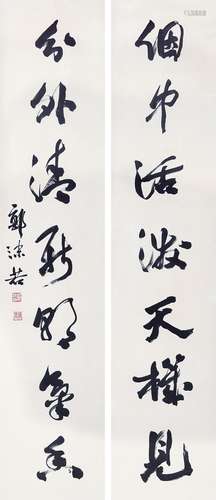 個中活潑天機見
分外清新 氣
郭沫若